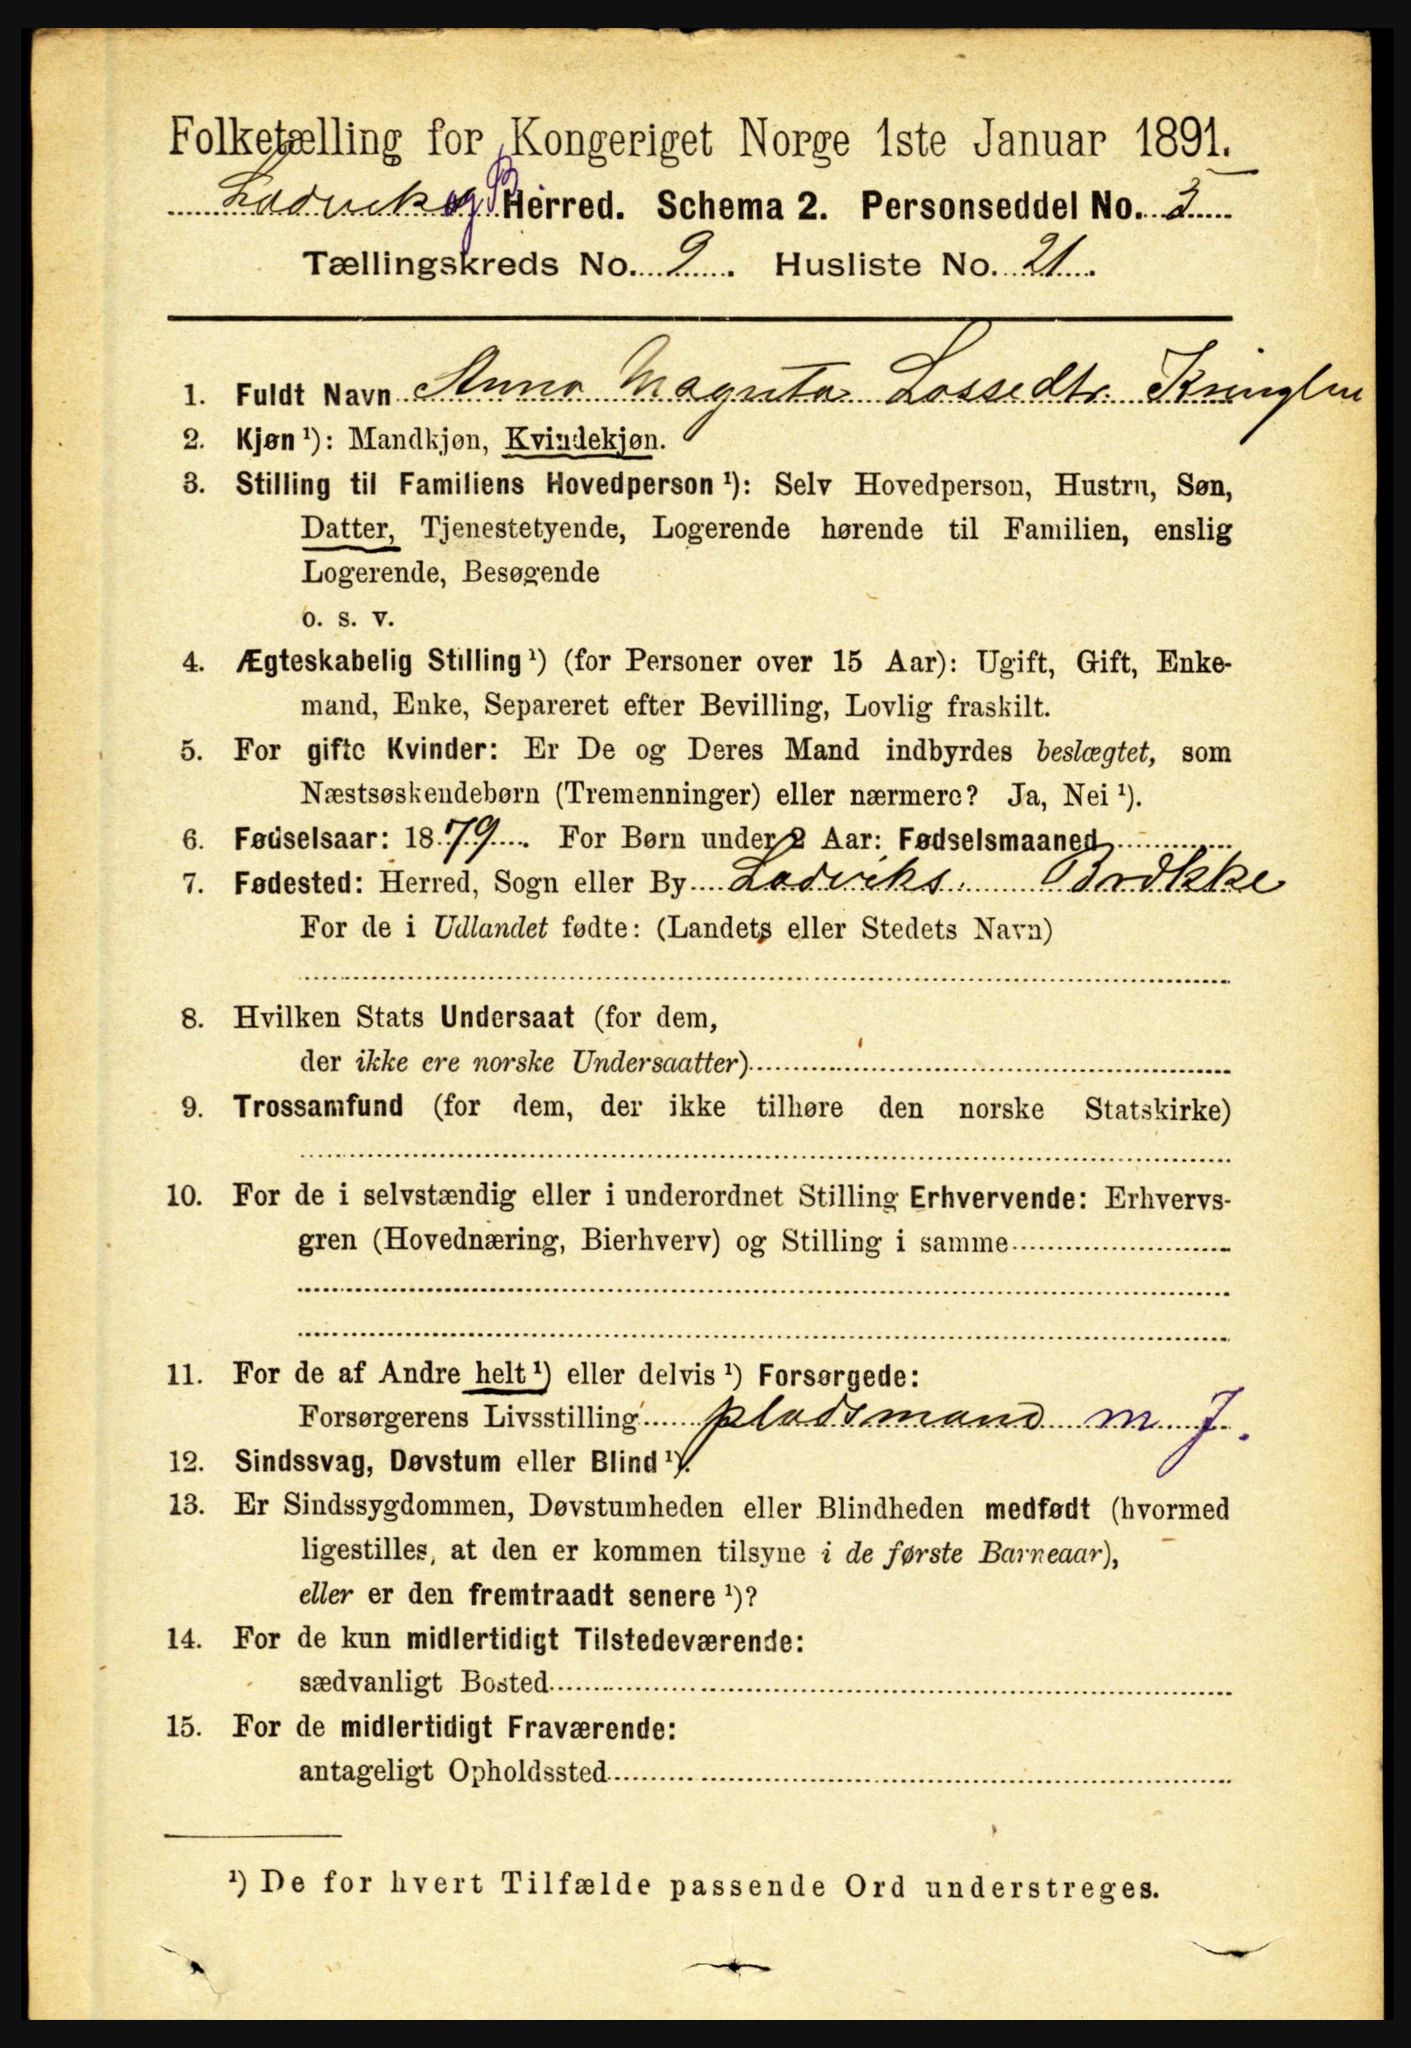 Folketælling for Kongeriget Norge 1ste Januar 1891.
Ladvik og B. Herred. Schema 2. Personseddel No. 5
Tællingskreds No. 2. Husliste No. 21.
1. Fuldt Navn Anna Lassedtr.
2. Kjøn ¹): Mandkjøn, Kvindekjøn.
3. Stilling til Familiens Hovedperson ¹): Selv Hovedperson, Hustru, Søn,
Datter, Tjenestetyende, Logerende hørende til Familien, enslig
Logerende, Besøgende
o. s. v.
4. Ægteskabelig Stilling ¹) (for Personer over 15 Aar): Ugift, Gift, Enke-
mand, Enke, Separeret efter Bevilling, Lovlig fraskilt.
5. For gifte Kvinder: Er De og Deres Mand indbyrdes beslægtet, som
Næstsøskendebørn (Tremenninger) eller nærmere? Ja, Nei ¹).
6. Fødselsaar: 1879. For Børn under 2 Aar: Fødselsmaaned
7. Fødested: Herred, Sogn eller By Ladviks, Brække
For de i Udlandet fødte: (Landets eller Stedets Navn)
8. Hvilken Stats Undersaat (for dem,
der ikke ere norske Undersaatter)
9. Trossamfund (for dem, der ikke tilhøre den norske Statskirke)
10. For de i selvstændig eller i underordnet Stilling Erhvervende: Erhvervs-
gren (Hovednæring, Bierhverv) og Stilling i samme
11. For de af Andre helt ¹) eller delvis ¹) Forsørgede:
Forsørgerens Livsstilling pladsmand m J.
12. Sindssvag, Døvstum eller Blind ¹).
13. Er Sindssygdommen, Døvstumheden eller Blindheden medfødt (hvormed
ligestilles, at den er kommen tilsyne i de første Barneaar),
eller er den fremtraadt senere ¹)?
14. For de kun midlertidigt Tilstedeværende:
sædvanligt Bosted
15. For de midlertidigt Fraværende:
antageligt Opholdssted
¹) De for hvert Tilfælde passende Ord understreges.